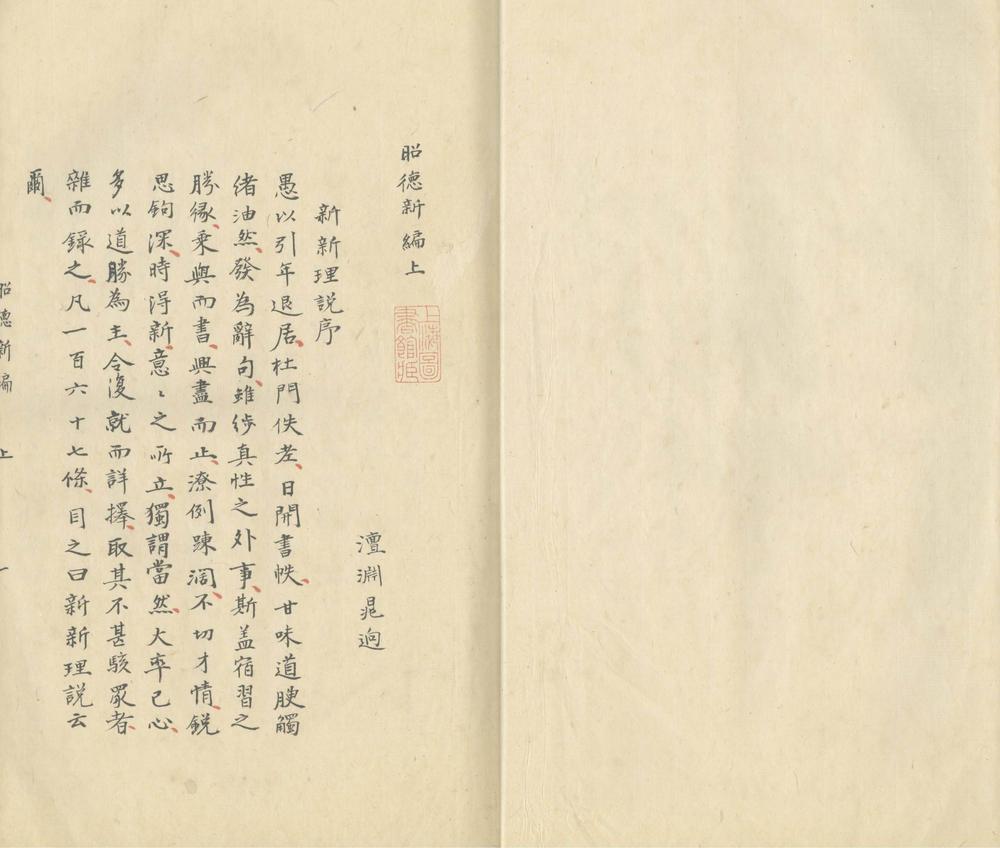 昭德新編上
上海圖書館藏
澶淵晁迥
新新理說序
愚以引年退居杜門佚老日開書帙甘味道腴觸
緒油然發為辭句雖涉真性之外事斯盖宿習之
勝緣乗興而書興盡而止潦倒踈濶不切才情銳
思鉤深時得新意〻之所立獨謂當然大率已心
多以道勝為主今復就而詳擇取其不甚駭眾者
雜而錄之凡一百六十七條目之曰新新理說云
爾
昭德新編 上 一